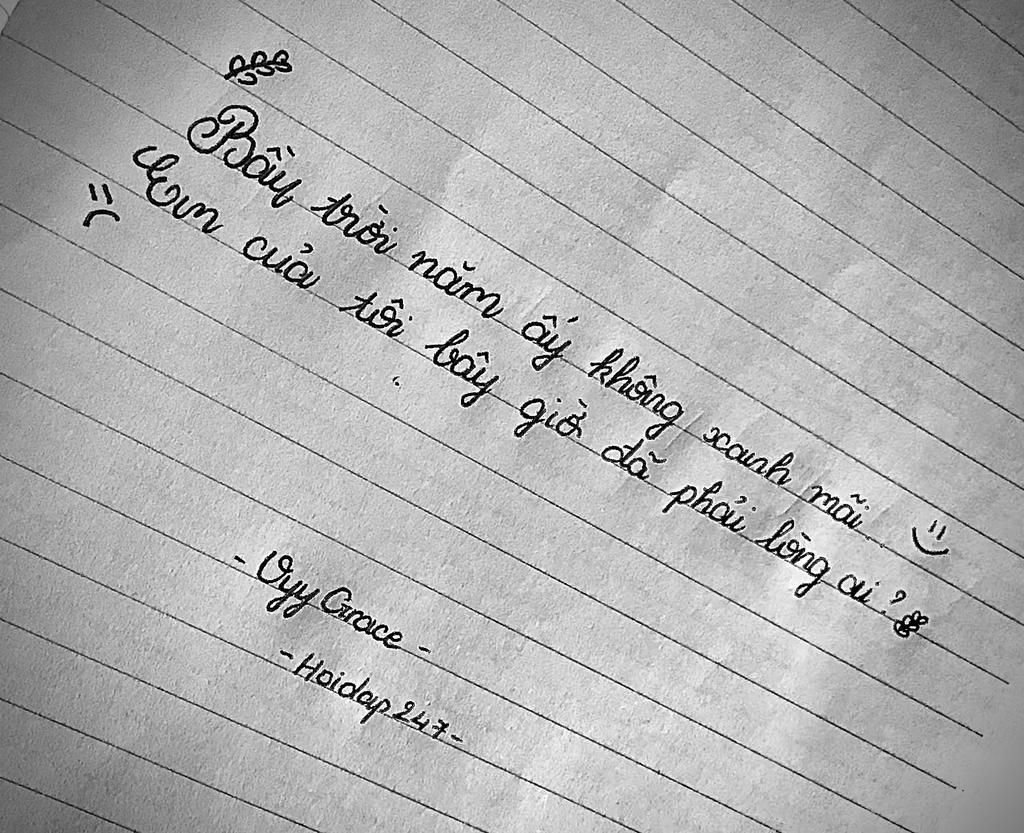 Bầu trời năm ấy không xanh mãi..
Em của tôi bây giờ đã phải lòng ai?
- Vyy Grace -
- Hoidap247 -